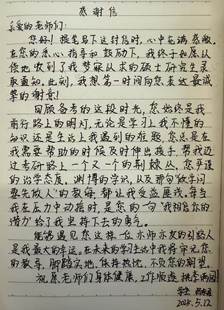 感谢信
亲爱的老师们：
您好！提笔写下这封信时，心中充满感激。
在您的悉心指导和鼓励下，我终于如愿从
地收到了我梦寐以求的硕士研究生录
取通知。此刻，我想第一时间向您致以最诚
挚的谢意！
回顾备考的这段时光，您始终是我前
行路上的明灯。无论是学习上我不懂的
知识还是生活上我遇到的难题，您总是在
我需要帮助的时候及时伸出援手，帮我迈
过考研路上一个又一个的荆棘。您严谨
的治学态度、渊博的学识，以及那句“做学问
要先做人”的教诲，都让我受益匪浅。每当
我在压力中动摇时，是您的一句“我相信你的
潜力”给了我坚持下去的勇气。
能够遇见您这样一位亦师亦友的引路人
是我最大的幸运。在未来的学习生活中我将牢记您
的教导，脚踏实地，保持热忱，不负您的期望。
祝愿老师们身体健康，工作顺遂，桃李满园！
学生
2025.5.12